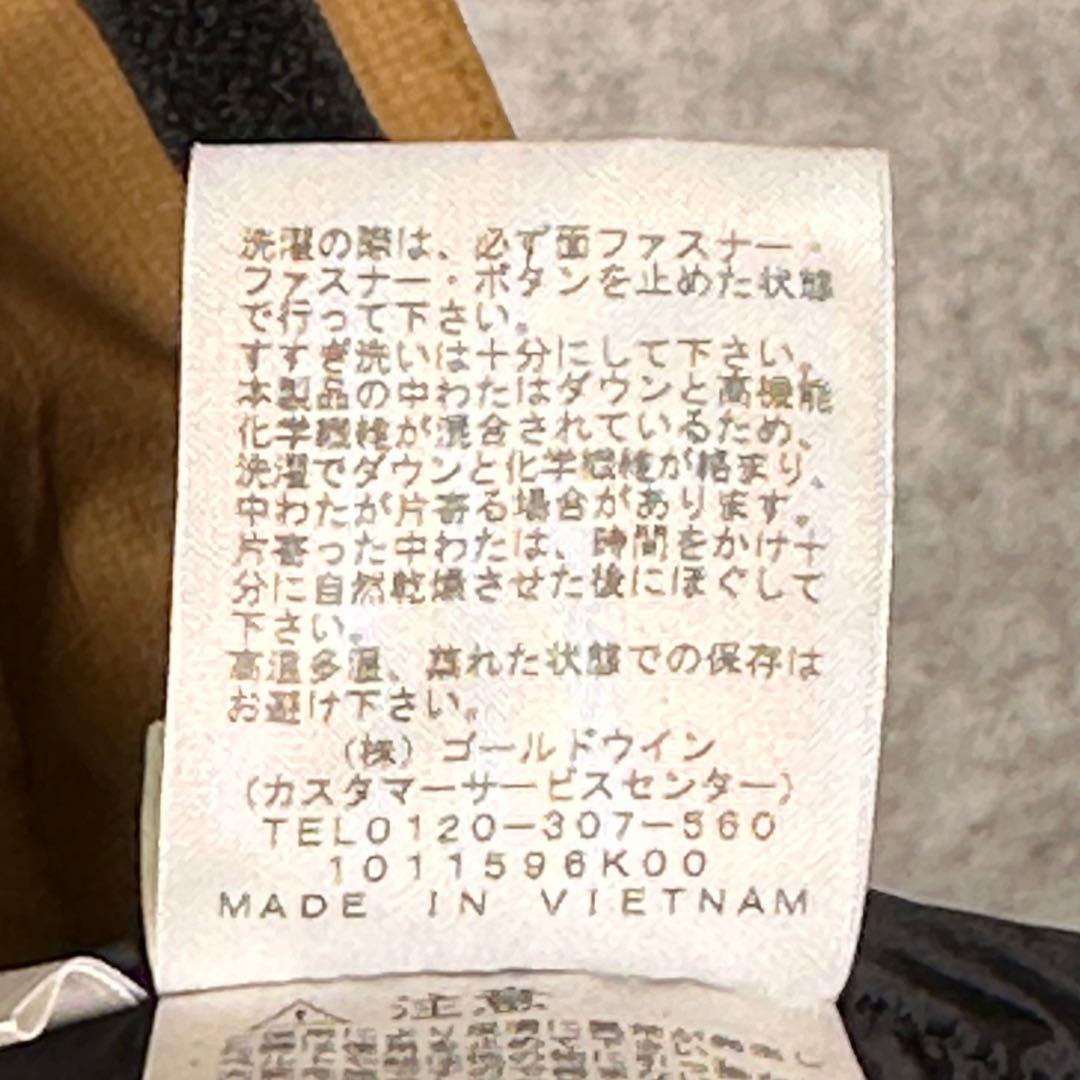 洗濯の際は、必ず面ファスナー・
ファスナー・ボタンを止めた状態
で行って下さい。
すすぎ洗いは十分にして下さい。
本製品の中わたはダウンと高機能
化学繊維が混合されているため、
洗濯でダウンと化学繊維が絡まり、
中わたが片寄る場合があります。
片寄った中わたは、時間をかけ十
分に自然乾燥させた後にほぐして
下さい。
高温多湿、蒸れた状態での保存は
お避け下さい。
(株)ゴールドウイン
(カスタマーサービスセンター)
TEL0120-307-560
1011596K00
MADE IN VIETNAM
注意